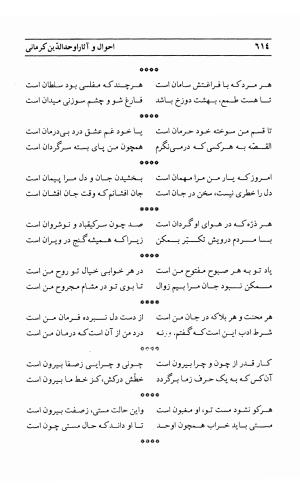 ٦١٤ احوال و آثار اوحدالدین کرمانی
****
هر مرد که با فراغتش سامان است هرچند که مفلسی بود سلطان است
تا هست طمع، بهشت دوزخ باشد فارغ شو و چشم سوزنی میدان است
****
تا قسم من سوخته خود حرمان است یا خود غم عشق درد بی‌درمان است
القصّه به هر کسی که درمی‌نگرم همچون من پای بسته سرگردان است
****
امروز که یار من مرا مهمان است بخشیدن جان و دل مرا پیمان است
دل را خطری نیست، سخن در جان است جان افشانم که وقت جان افشان است
****
هر ذرّه که در هوای او گردان است صد چون سرکیقباد و نوشروان است
با مردم درویش تکبّر بمکن زیرا که همیشه گنج در ویران است
****
یاد تو به هر صبوح مفتوح من است در هر خوابی خیال تو روح من است
ممکن نبود جان مرا بیم زوال تا بوی تو در مشام مجروح من است
****
هر محنت و هر بلا که در جان من است از دست دل نبرده فرمان من است
شرط ادب این است که گفتم، ورنه درد من از آن است که درمان من است
****
کار قدر از چون و چرا بیرون است چونی و چرایی ز صفا بیرون است
آن کس که به یک حرف زما برگردد خطّش درکش، کز خط ما بیرون است
****
هر کو نشود مست تو، او مغبون است واین حالت مستی، زصفت بیرون است
مستی باید خراب همچون اوحد تا او داند که حال مستی چون است
****